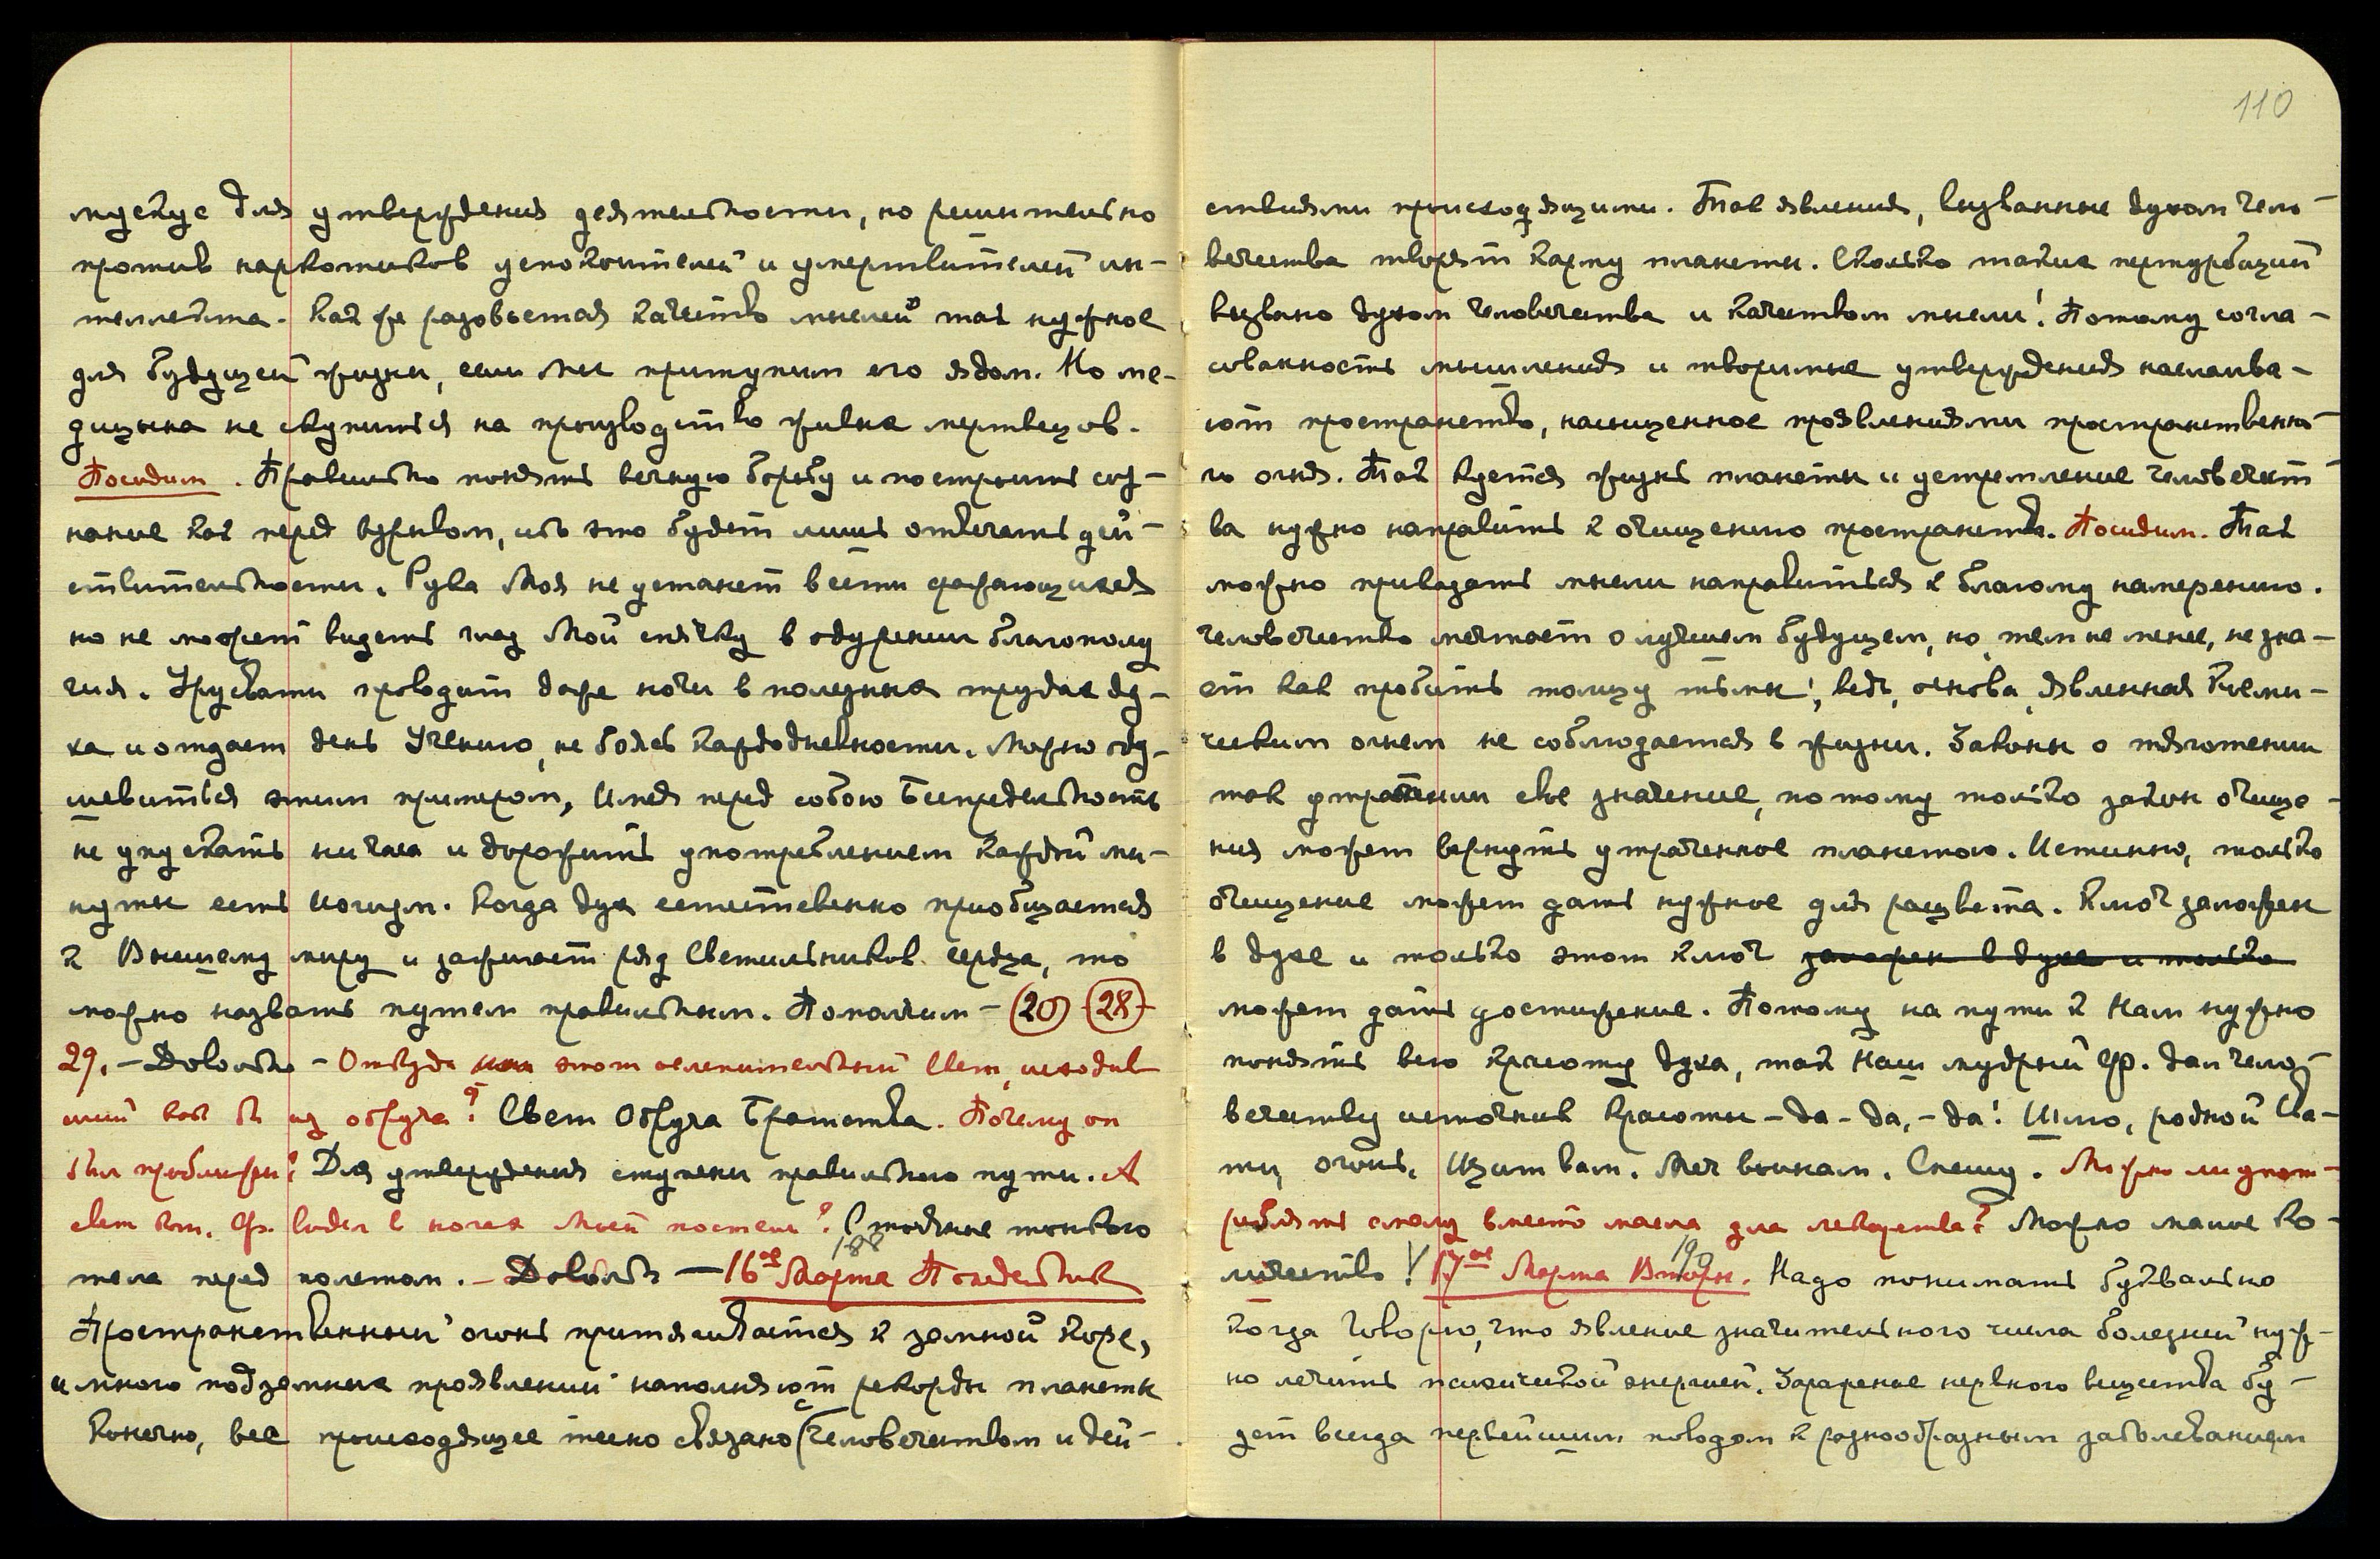 мускус для утверждения деятельности, но решительно
против наркотиков успокоителей и умертвителей ин-
теллекта. Как же разовьется качество мыслей так нужное
для будущей жизни, если мы притупим его ядом. Но ме-
дицина не скупится на производство живых мертвецов.
Посидим. Правильно понять вечную борьбу и построить соз-
нание как перед взрывом, ибо это будет лишь отвечать дей-
ствительности. Рука Моя не устанет вести сражающихся
но не может видеть глаз Мой спячку в одурении благополу
чия. Урусвати проводит даже ночи в полезных трудах ду-
ха и отдает день Учению, не боясь каждодневности. Можно оду-
шевиться этим примером, Имея перед собою Беспредельность
не упускать ни часа и дорожить употреблением каждой ми-
нуты есть подвиг. Когда дух естественно приобщается
к Высшему миру и зажигает ряд Светильников сердца, то
можно назвать путем правильным. Помолчим – (20) (28)
29. – Довольно – Откуда этот ослепительный Свет, исходив
ший как бы из обруча? Свет Обруча Братства. Почему он
был приближен? Для утверждения ступени правильного пути. А
свет кот. Ф. видел в ногах Моей постели? Стояние тонкого
тела перед полетом. – Довольно – 16ое Марта Понедельник
188
Пространственный огонь притягивается к земной коре,
и много подземных проявлений наполняют рекорды планеты
Конечно, все происходящее тесно связано с человечеством и дей-
110
ствиями происходящими. Так явления, вызванные духом чело-
вечества творят карму планеты. Сколько таких пертурбаций
вызвано духом человечества и качеством мысли! Потому согла-
сованность мышления и творимые утверждения наслаива-
ют пространство, насыщенное проявлениями пространственно-
го огня. Так куется жизнь планеты и устремление человечест-
ва нужно направить к очищению пространства. Посидим. Так
можно приказать мысли направиться к благому намерению.
Человечество мечтает о лучшем будущем, но, тем не менее, не зна-
ет как пробить толщу тьмы; ведь, основа, явленная Косми-
ческим огнем не соблюдается в жизни. Законы о тяготении
так утратили свое значение, потому только закон очище-
ния может вернуть утраченное планетою. Истинно, только
очищение может дать нужное для расцвета. Ключ заложен
в духе и только этот ключ заложен в духе и только
может дать достижение. Потому на пути к Нам нужно
понять всю красоту духа, так Наш мудрый Ф. дал чело-
вечеству источник красоты – да – да, – да! Шлю, родной Сва-
ти, огонь. Щит вам. Меч вынам. Спешу. Можно ли упот-
реблять смолу вместо масла для лекарства? Можно малое ко-
личество! 17ое Марта Вторн. Надо понимать буквально
190
когда Говорю, что явление значительного числа болезней нуж-
но лечить психической энергией. Заражение нервного вещества бу-
дет всегда первейшим поводом к разнообразным заболеваниям